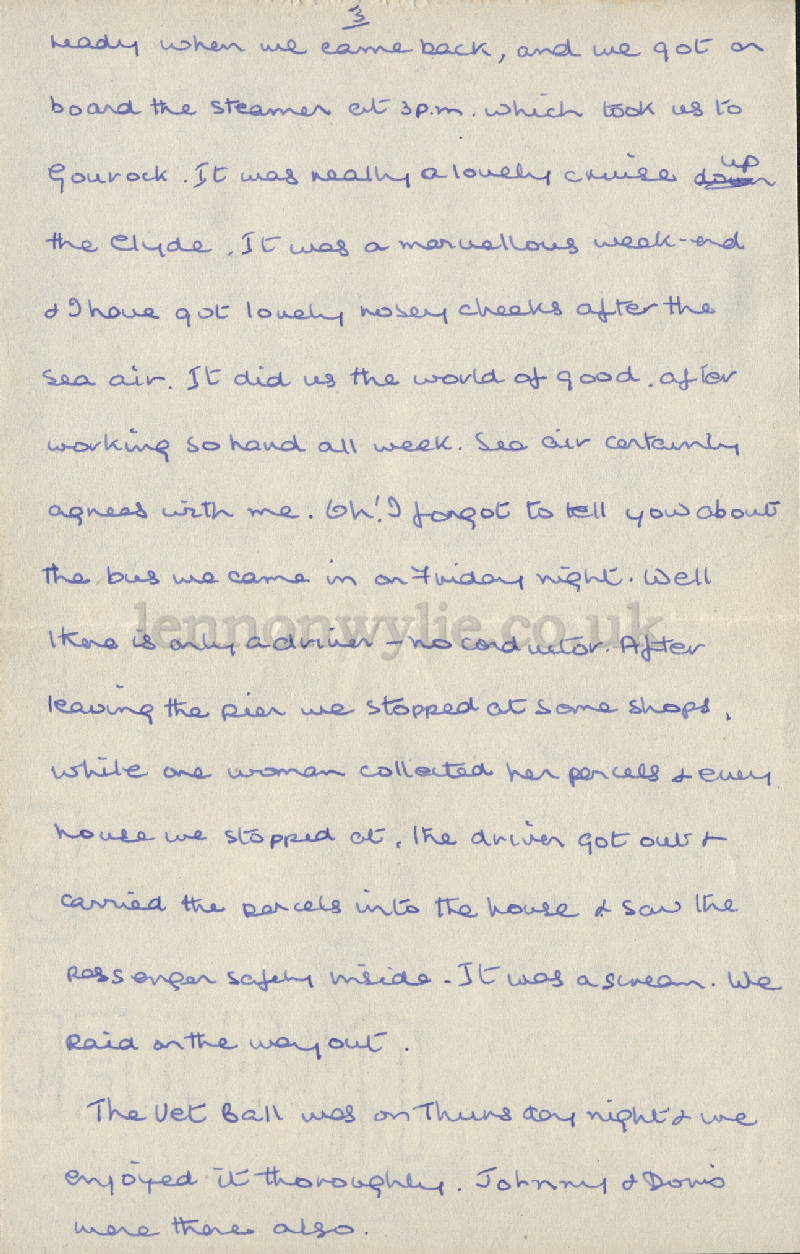 3
ready when we came back, and we got on
board the steamer at 3p.m. which took us to
Gourock. It was really a lovely cruise down up
the Clyde. It was a marvellous week-end
& I have got lovely rosey cheeks after the
sea air. It did us the world of good, after
working so hard all week. Sea air certainly
agrees with me. Oh! I forgot to tell you about
the bus we came in on Friday night. Well
there is only a driver - no conductor. After
lennonwylie.co.uk
leaving the pier we stopped at some shops,
while one woman collected her parcels & every
house we stopped at, the driver got out &
carried the parcels into the house & saw the
passenger safely inside. It was a scream. We
paid on the way out.
The Vet Ball was on Thursday night & we
enjoyed it thoroughly. Johnny & Doris
were there also.